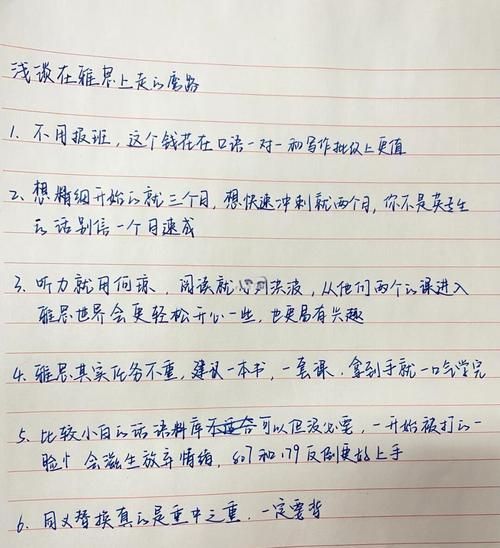 浅谈在雅思上走的弯路
1. 不用报班，这个钱花在口语一对一和写作批改上更值
2、想精细开始的就三个月，想快速冲刺就两个月，你不是英专生
的话别信一个月速成
3. 听力就用何琼、阅读就刘洪波，从他们两个的课进入
雅思世界会更轻松开心一些，也更易有兴趣
4、雅思其实任务不重，建议一本书，一套课，拿到手就一口气学完
5、比较小白的话语料库可以但没必要，一开始被打的一
脸忄会滋生放弃情绪，807和179反倒更好上手
6、同义替换真的是重中之重，一定要背